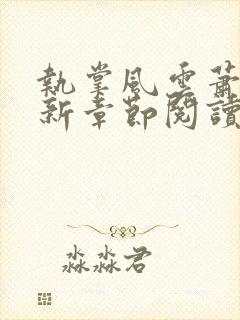 執掌風雲蕭
新章節閱讀
淼淼君